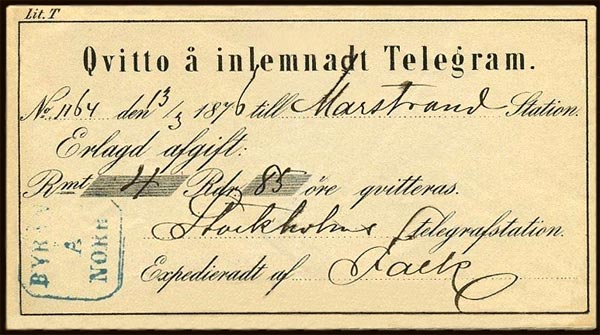 Lit. T
Qvitto å inlemnadt Telegram.
No. 1164 den 13/3 1876 till Marstrand Station.
Erlagd afgift:
Rmt 4 Rdr 85 öre qvitteras.
Stockholms Telegrafstation.
Expedieradt af Falck
BYRÅ
Å
NORR